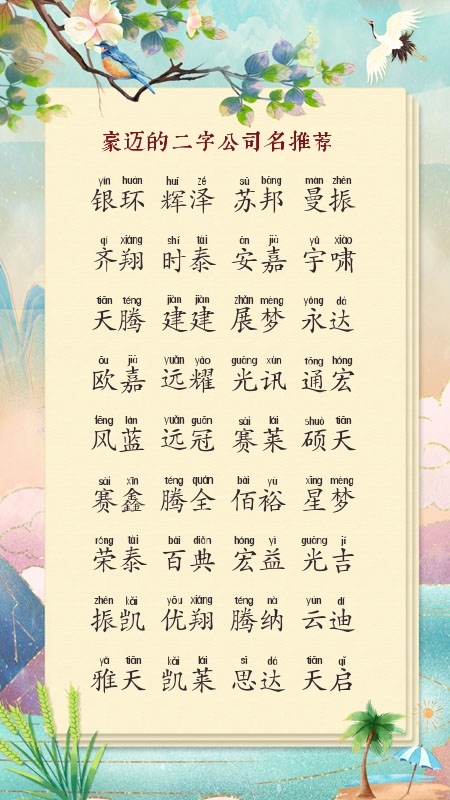 豪迈的二字公司名推荐
yín huán huī zé sū bāng màn zhèn
银环 辉泽 苏邦 曼振
qí xiáng shí tài ān jiā yǔ xiào
齐翔 时泰 安嘉 宇啸
tiān téng jiàn jiàn zhǎn mèng yǒng dá
天腾 建建 展梦 永达
ōu jiā yuǎn yào guāng xùn tōng hóng
欧嘉 远耀 光讯 通宏
fēng lán yuǎn guān sài lái shuò tiān
风蓝 远冠 赛莱 硕天
sài xīn téng quán bǎi yù xīng mèng
赛鑫 腾全 佰裕 星梦
róng tài bǎi diǎn hóng yì guāng jí
荣泰 百典 宏益 光吉
zhèn kǎi yōu xiáng téng nà yún dí
振凯 优翔 腾纳 云迪
yǎ tiān kǎi lái sī dá tiān qǐ
雅天 凯莱 思达 天启